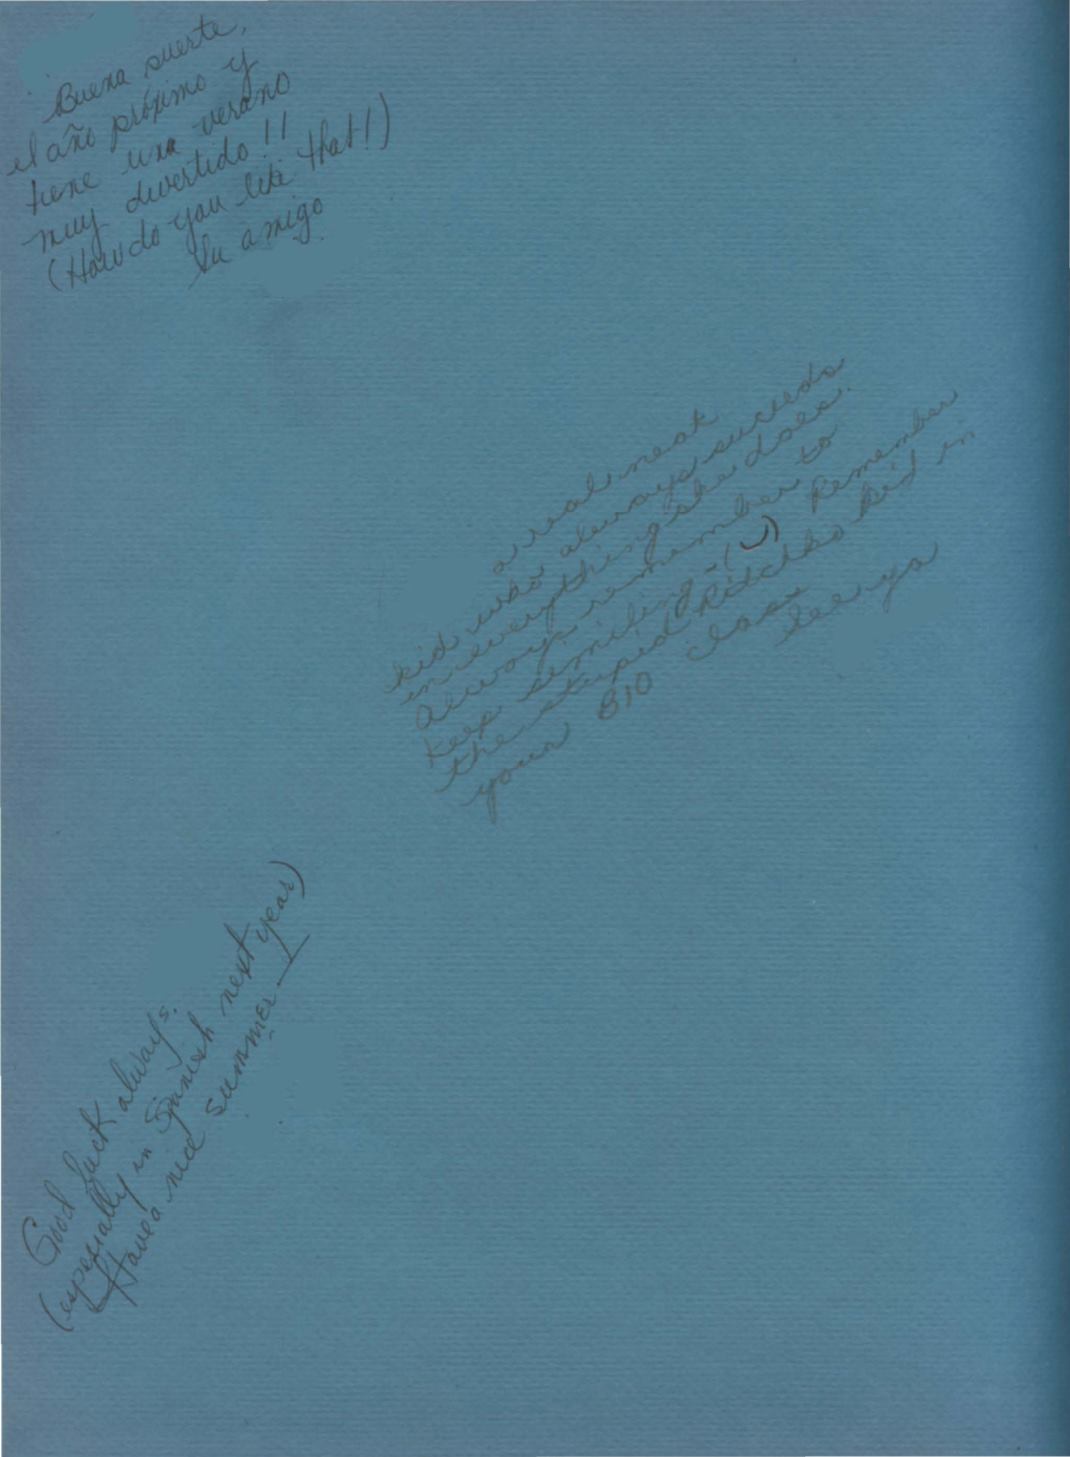 Buena suerte,
el año próximo y
tiene una verano
muy divertido !!
(How do you like that!)
Su amigo
a real neat
kid who always succeeds
in everything she does.
Always remember to
keep smiling - (‿) Remember
the stupid kid in
your BIO class
See ya
Good luck always.
(especially in Spanish next year)
Have a nice summer